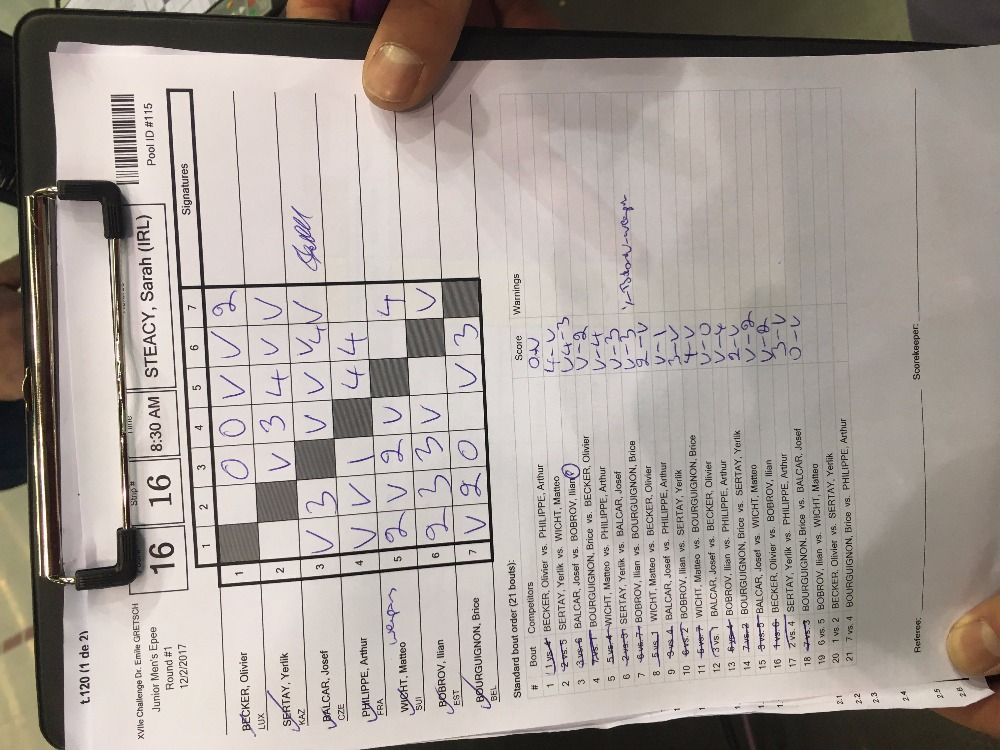 t.120 (1 de 2)
XVIIe Challenge Dr. Emile GRETSCH
Junior Men's Epee
Round #1
12/2/2017
Strip #
Time
16 16 8:30 AM STEACY, Sarah (IRL)
Pool ID #115
1 2 3 4 5 6 7 Signatures
BECKER, Olivier 1 0 0 V V 2
LUX
SERTAY, Yerlik 2 V 3 4 V V
KAZ
BALCAR, Josef 3 V 3 V V V4 V
CZE
PHILIPPE, Arthur 4 V V 1 4 4
FRA
WICHT, Matteo 5 2 V 2 V 4
SUI
BOBROV, Ilian 6 2 3 3 V V
EST
BOURGUIGNON, Brice 7 V 2 0 V 3
BEL
Standard bout order (21 bouts):
# Bout Competitors Score Warnings
1 1 vs. 4 BECKER, Olivier vs. PHILIPPE, Arthur 0-V
2 2 vs. 5 SERTAY, Yerlik vs. WICHT, Matteo 4-V
3 3 vs. 6 BALCAR, Josef vs. BOBROV, Ilian V4-3
4 7 vs. 1 BOURGUIGNON, Brice vs. BECKER, Olivier V-2
5 5 vs. 4 WICHT, Matteo vs. PHILIPPE, Arthur V-4
6 2 vs. 3 SERTAY, Yerlik vs. BALCAR, Josef V-3
7 6 vs. 7 BOBROV, Ilian vs. BOURGUIGNON, Brice V-3
8 5 vs. 1 WICHT, Matteo vs. BECKER, Olivier 2-V
9 3 vs. 4 BALCAR, Josef vs. PHILIPPE, Arthur V-1
10 6 vs. 2 BOBROV, Ilian vs. SERTAY, Yerlik 3-V
11 5 vs. 7 WICHT, Matteo vs. BOURGUIGNON, Brice 4-V
12 3 vs. 1 BALCAR, Josef vs. BECKER, Olivier V-0
13 6 vs. 4 BOBROV, Ilian vs. PHILIPPE, Arthur V-4
14 7 vs. 2 BOURGUIGNON, Brice vs. SERTAY, Yerlik 2-V
15 3 vs. 5 BALCAR, Josef vs. WICHT, Matteo V-2
16 1 vs. 6 BECKER, Olivier vs. BOBROV, Ilian V-2
17 2 vs. 4 SERTAY, Yerlik vs. PHILIPPE, Arthur 3-V
18 7 vs. 3 BOURGUIGNON, Brice vs. BALCAR, Josef 0-V
19 6 vs. 5 BOBROV, Ilian vs. WICHT, Matteo
20 1 vs. 2 BECKER, Olivier vs. SERTAY, Yerlik
21 7 vs. 4 BOURGUIGNON, Brice vs. PHILIPPE, Arthur
Referee: Scorekeeper:
21
22
23
24
25
26